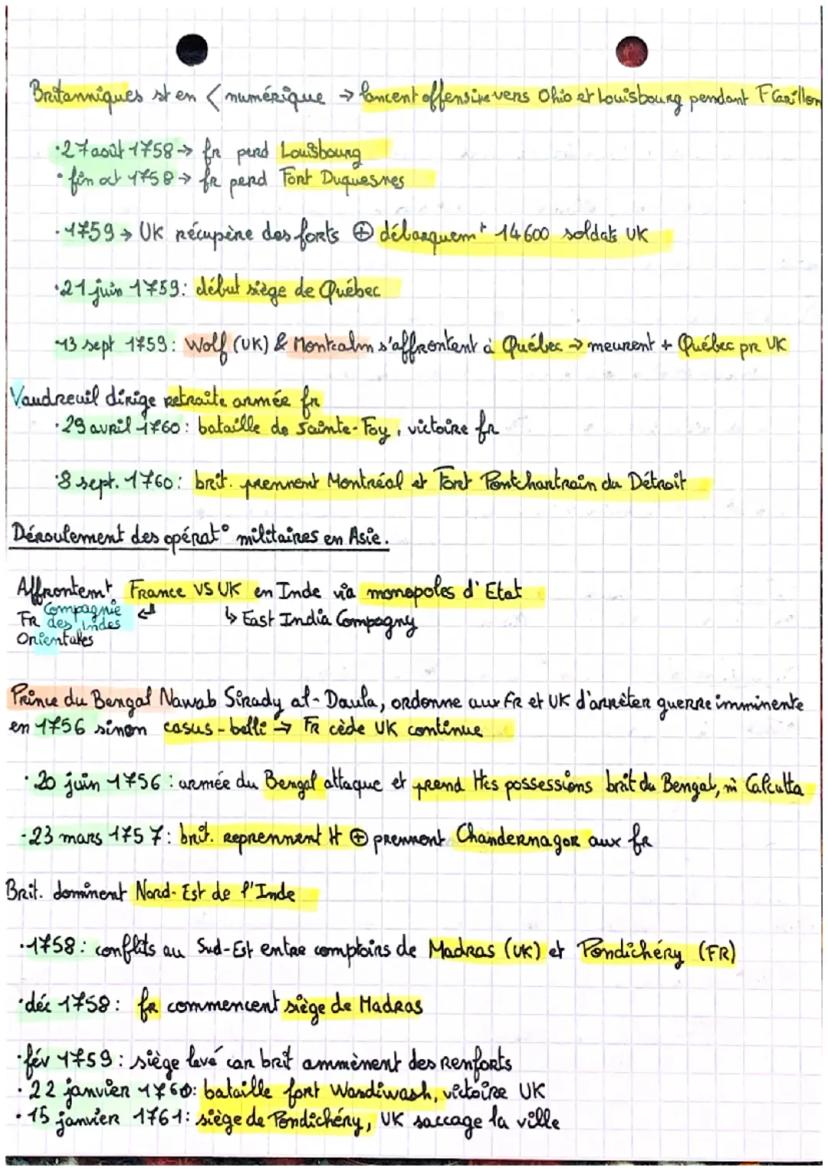 Britanniques st en < numérique → lancent offensive vers Ohio et Louisbourg pendant F Carillon
·27 août 1758 → fr perd Louisbourg
·fin oct 1758 → fr perd Font Duquesnes
·1759 → UK récupère des forts ⊕ débarquemt 14600 soldats UK
·21 juin 1759: début siège de Québec
·13 sept 1759: Wolf (UK) & Montcalm s'affrontent à Québec → meurent + Québec pr UK
Vaudreuil dirige retraite armée fr
·29 avril 1760: bataille de Sainte-Foy, victoire fr
·8 sept. 1760: brit. prennent Montréal et Fort Pontchantrain du Détroit
Déroulement des opérat° militaires en Asie.
Affrontemt France VS UK en Inde via monopoles d'Etat
FR Compagnie des Indes Orientales ↲ ↳ East India Compagny
Prince du Bengal Nawab Sirady al-Daula, ordonne aux FR et UK d'arrêter guerre imminente
en 1756 sinon casus-belli → FR cède UK continue
·20 juin 1756: armée du Bengal attaque et prend ttes possessions brit du Bengal, m̂ Calcutta
·23 mars 1757: brit. reprennent tt ⊕ prennent Chandernagor aux fr
Brit. dominent Nord-Est de l'Inde
·1758: conflits au Sud-Est entre comptoirs de Madras (UK) et Pondichéry (FR)
·déc 1758: fr commencent siège de Madras
·fév 1759: siège levé car brit ammènent des renforts
·22 janvier 1760: bataille fort Wandiwash, victoire UK
·15 janvier 1761: siège de Pondichéry, UK saccage la ville